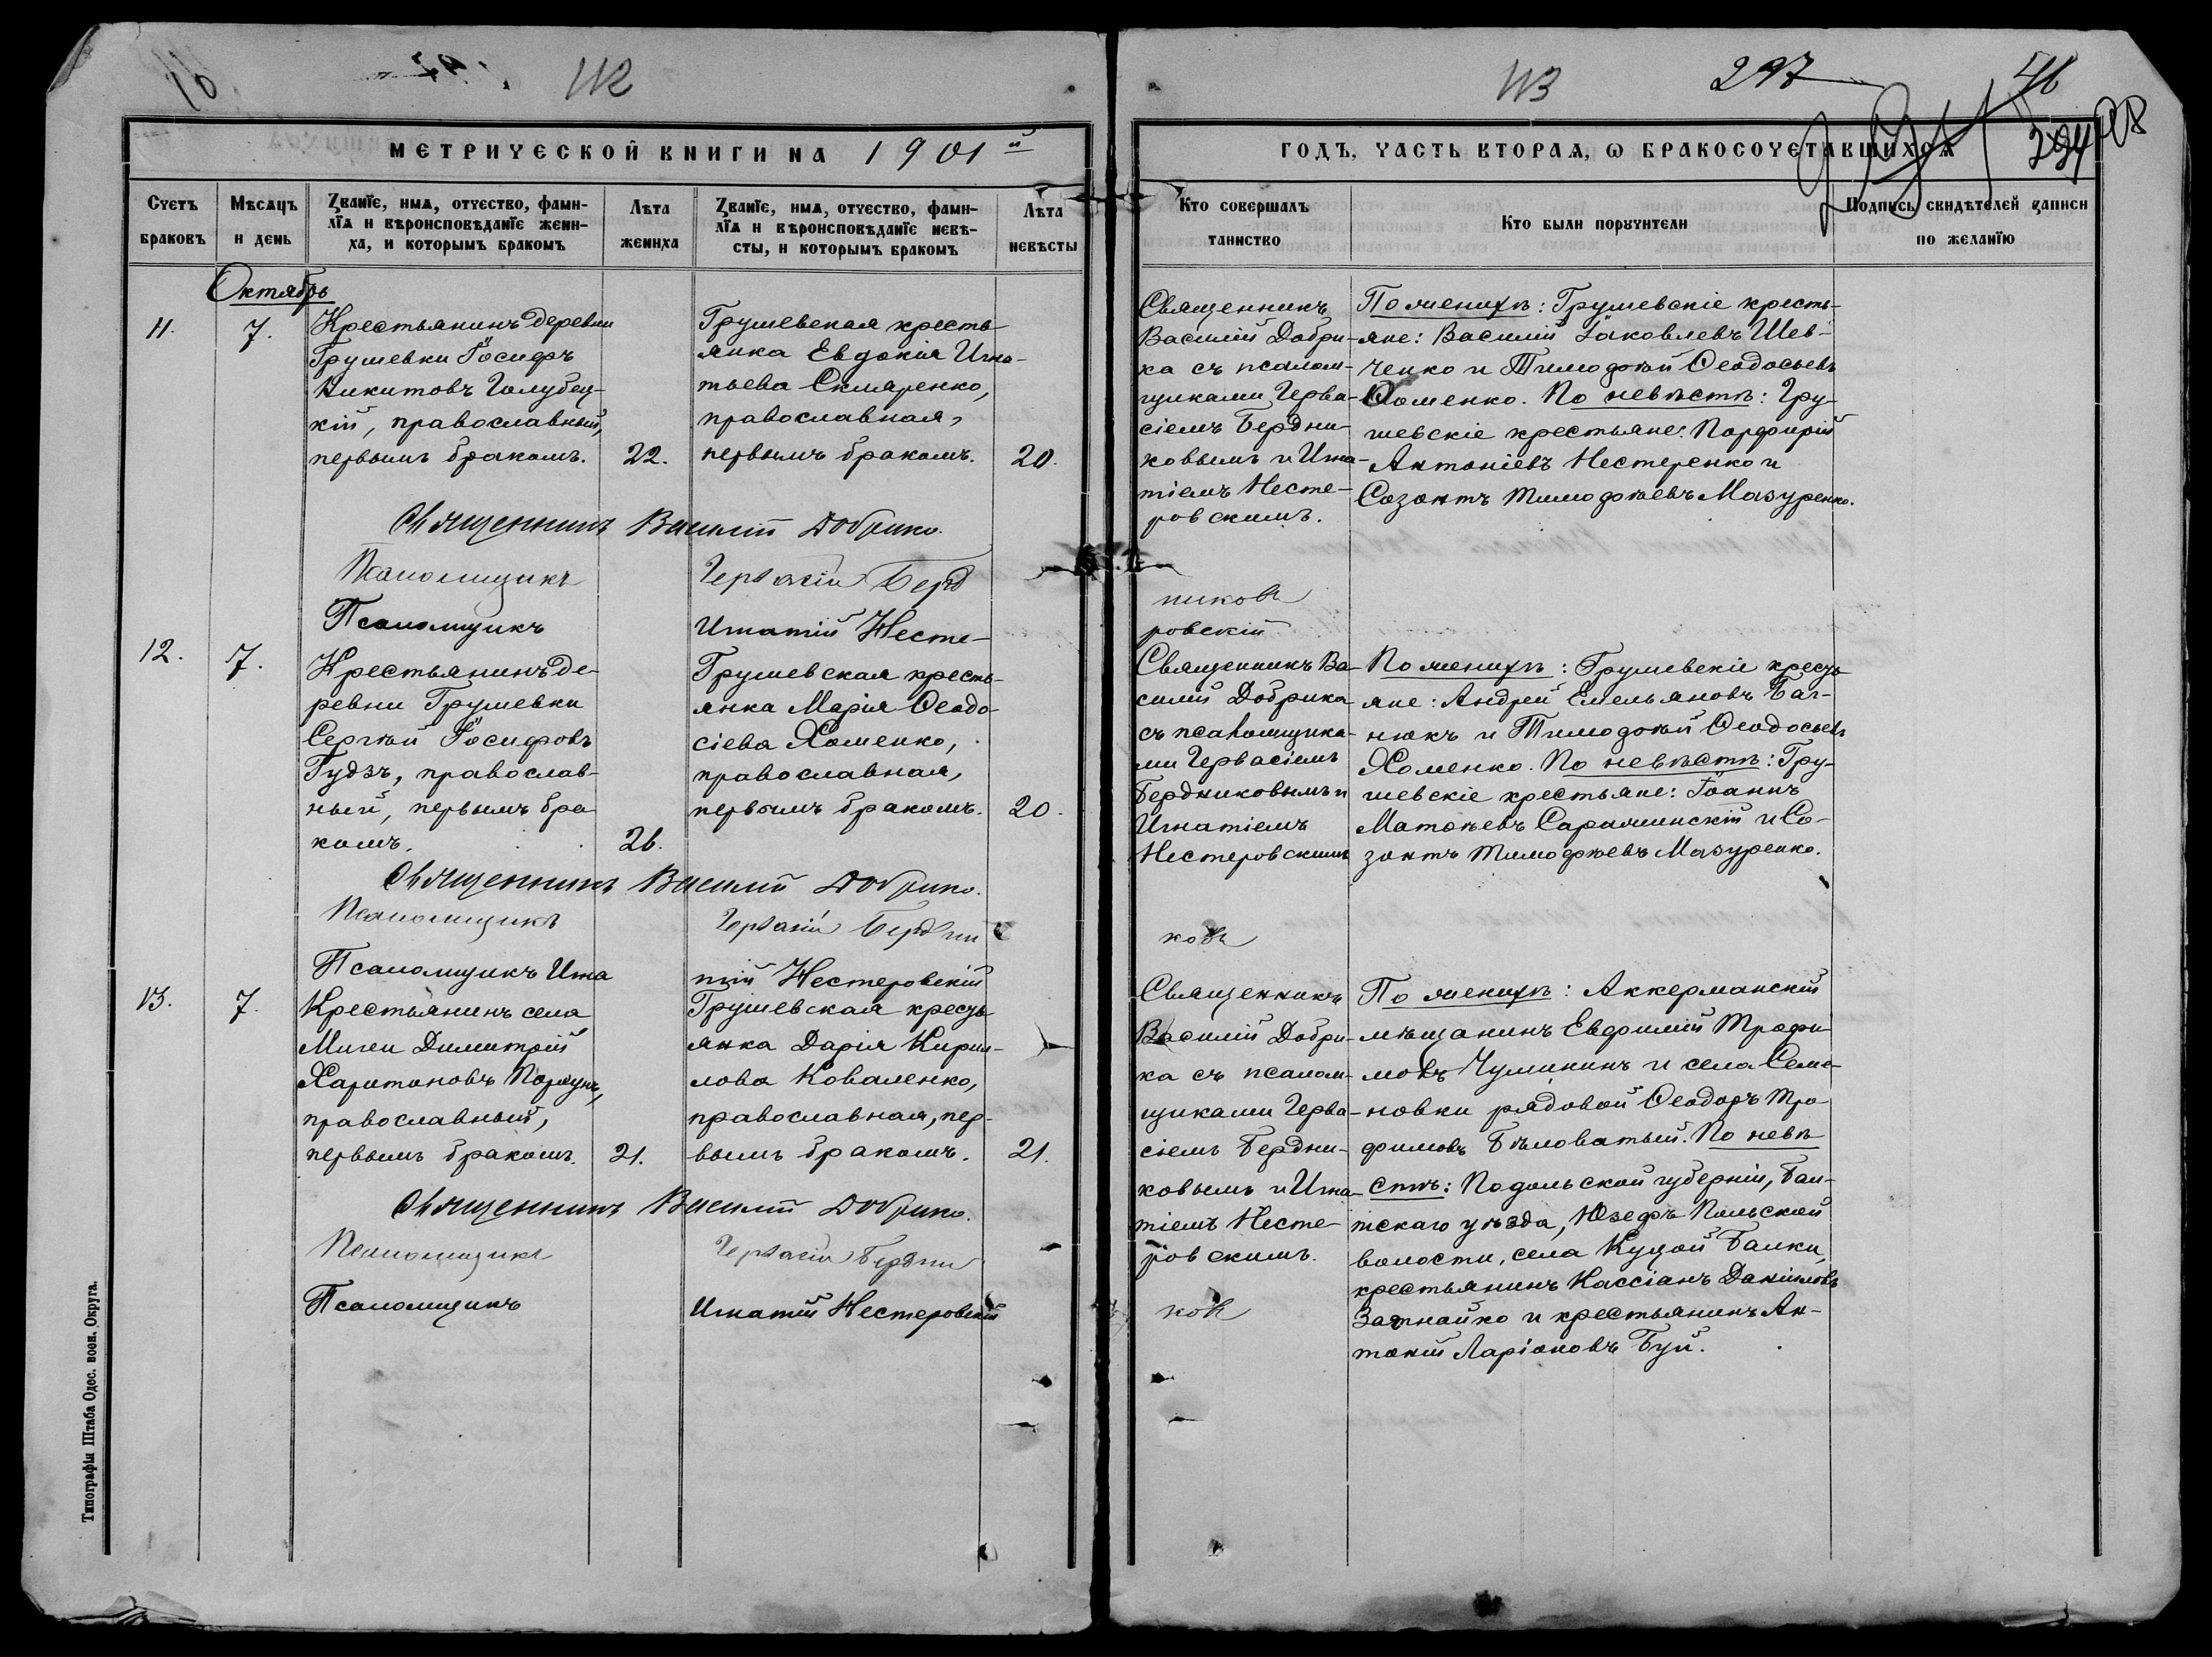 112
113
297
46
294
МЕТРИЧЕСКОЙ КНИГИ НА 1901й
ГОДЪ, ЧАСТЬ ВТОРАЯ, Ѡ БРАКОСОЧЕТАВШИХСЯ
Счетъ браковъ
Мѣсяцъ и день
Званїе, имя, отчество, фамилїя и вѣроисповѣданїе жениха, и которымъ бракомъ
Лѣта жениха
Званїе, имя, отчество, фамилїя и вѣроисповѣданїе невѣсты, и которымъ бракомъ
Лѣта невѣсты
Кто совершалъ таинство
Кто были поручители
Подпись свидѣтелей записи по желанїю
Октябрь
11.
7.
Крестьянинъ деревни
Грушевки Іосифъ
Никитовъ Голубец-
кій, православный,
первымъ бракомъ.
22.
Грушевская кресть-
янка Евдокія Игна-
тьева Скляренко,
православная,
первымъ бракомъ.
20.
Священникъ
Василій Добри-
ка съ псалом-
щиками Герва-
сіемъ Бердни-
ковымъ и Игна-
тіемъ Несте-
ровскимъ.
По женихѣ: Грушевскіе кресть-
яне: Василій Іаковлевъ Шев-
ченко и Тимофѣй Ѳеодосьевъ
Хоменко. По невѣстѣ: Гру-
шевскіе крестьяне: Порфирій
Антоніевъ Нестеренко и
Созонтъ Тимофѣевъ Мазуренко.
Священникъ Василій Добрика.
Псаломщикъ Гервасій Берд
никовъ
Псаломщикъ Игнатій Несте-
ровскій
12.
7.
Крестьянинъ де-
ревни Грушевки
Сергѣй Іосифовъ
Гудзъ, православ-
ный, первымъ бра
комъ.
26.
Грушевская кресть-
янка Марія Ѳеодо-
сіева Хоменко,
православная,
первымъ бракомъ.
20.
Священникъ Ва-
силій Добрика
съ псаломщика-
ми Гервасіемъ
Бердниковымъ и
Игнатіемъ
Нестеровскимъ
По женихѣ: Грушевскіе кресть-
яне: Андрей Емельяновъ Баг-
нюкъ и Тимофѣй Ѳеодосьевъ
Хоменко. По невѣстѣ: Гру-
шевскіе крестьяне: Іоаннъ
Матѳѣевъ Саражинскій и Со-
зонтъ Тимофѣевъ Мазуренко.
Священникъ Василій Добрика.
Псаломщикъ Гервасій Бердни
ковъ
Псаломщикъ Игна
тій Нестеровскій
13.
7.
Крестьянинъ села
Мигеи Димитрій
Харитоновъ
православный,
первымъ бракомъ.
21.
Грушевская кресть-
янка Дарія Кирил-
лова Коваленко,
православная, пер-
вымъ бракомъ.
21.
Священникъ
Василій Добри-
ка съ псалом-
щиками Герва-
сіемъ Бердни-
ковымъ и Игна-
тіемъ Несте-
ровскимъ.
По женихѣ: Аккерманскій
мѣщанинъ Евфимій Трофи-
мовъ Чумикинъ и села Семе-
новки рядовой Ѳеодоръ Тро-
фимовъ Бѣловатый. По невѣ
стѣ: Подольской губерніи, Бал-
тскаго уѣзда, Юзефъ Польской
волости, села Куцой Балки,
крестьянинъ Кассіанъ Даніиловъ
и крестьянинъ Ан-
тоній Ларіоновъ Буй.
Священникъ Василій Добрика.
Псаломщикъ Гервасій Бердни
ковъ
Псаломщикъ Игнатій Нестеровскій
Типографія Штаба Одес. воен. Округа.